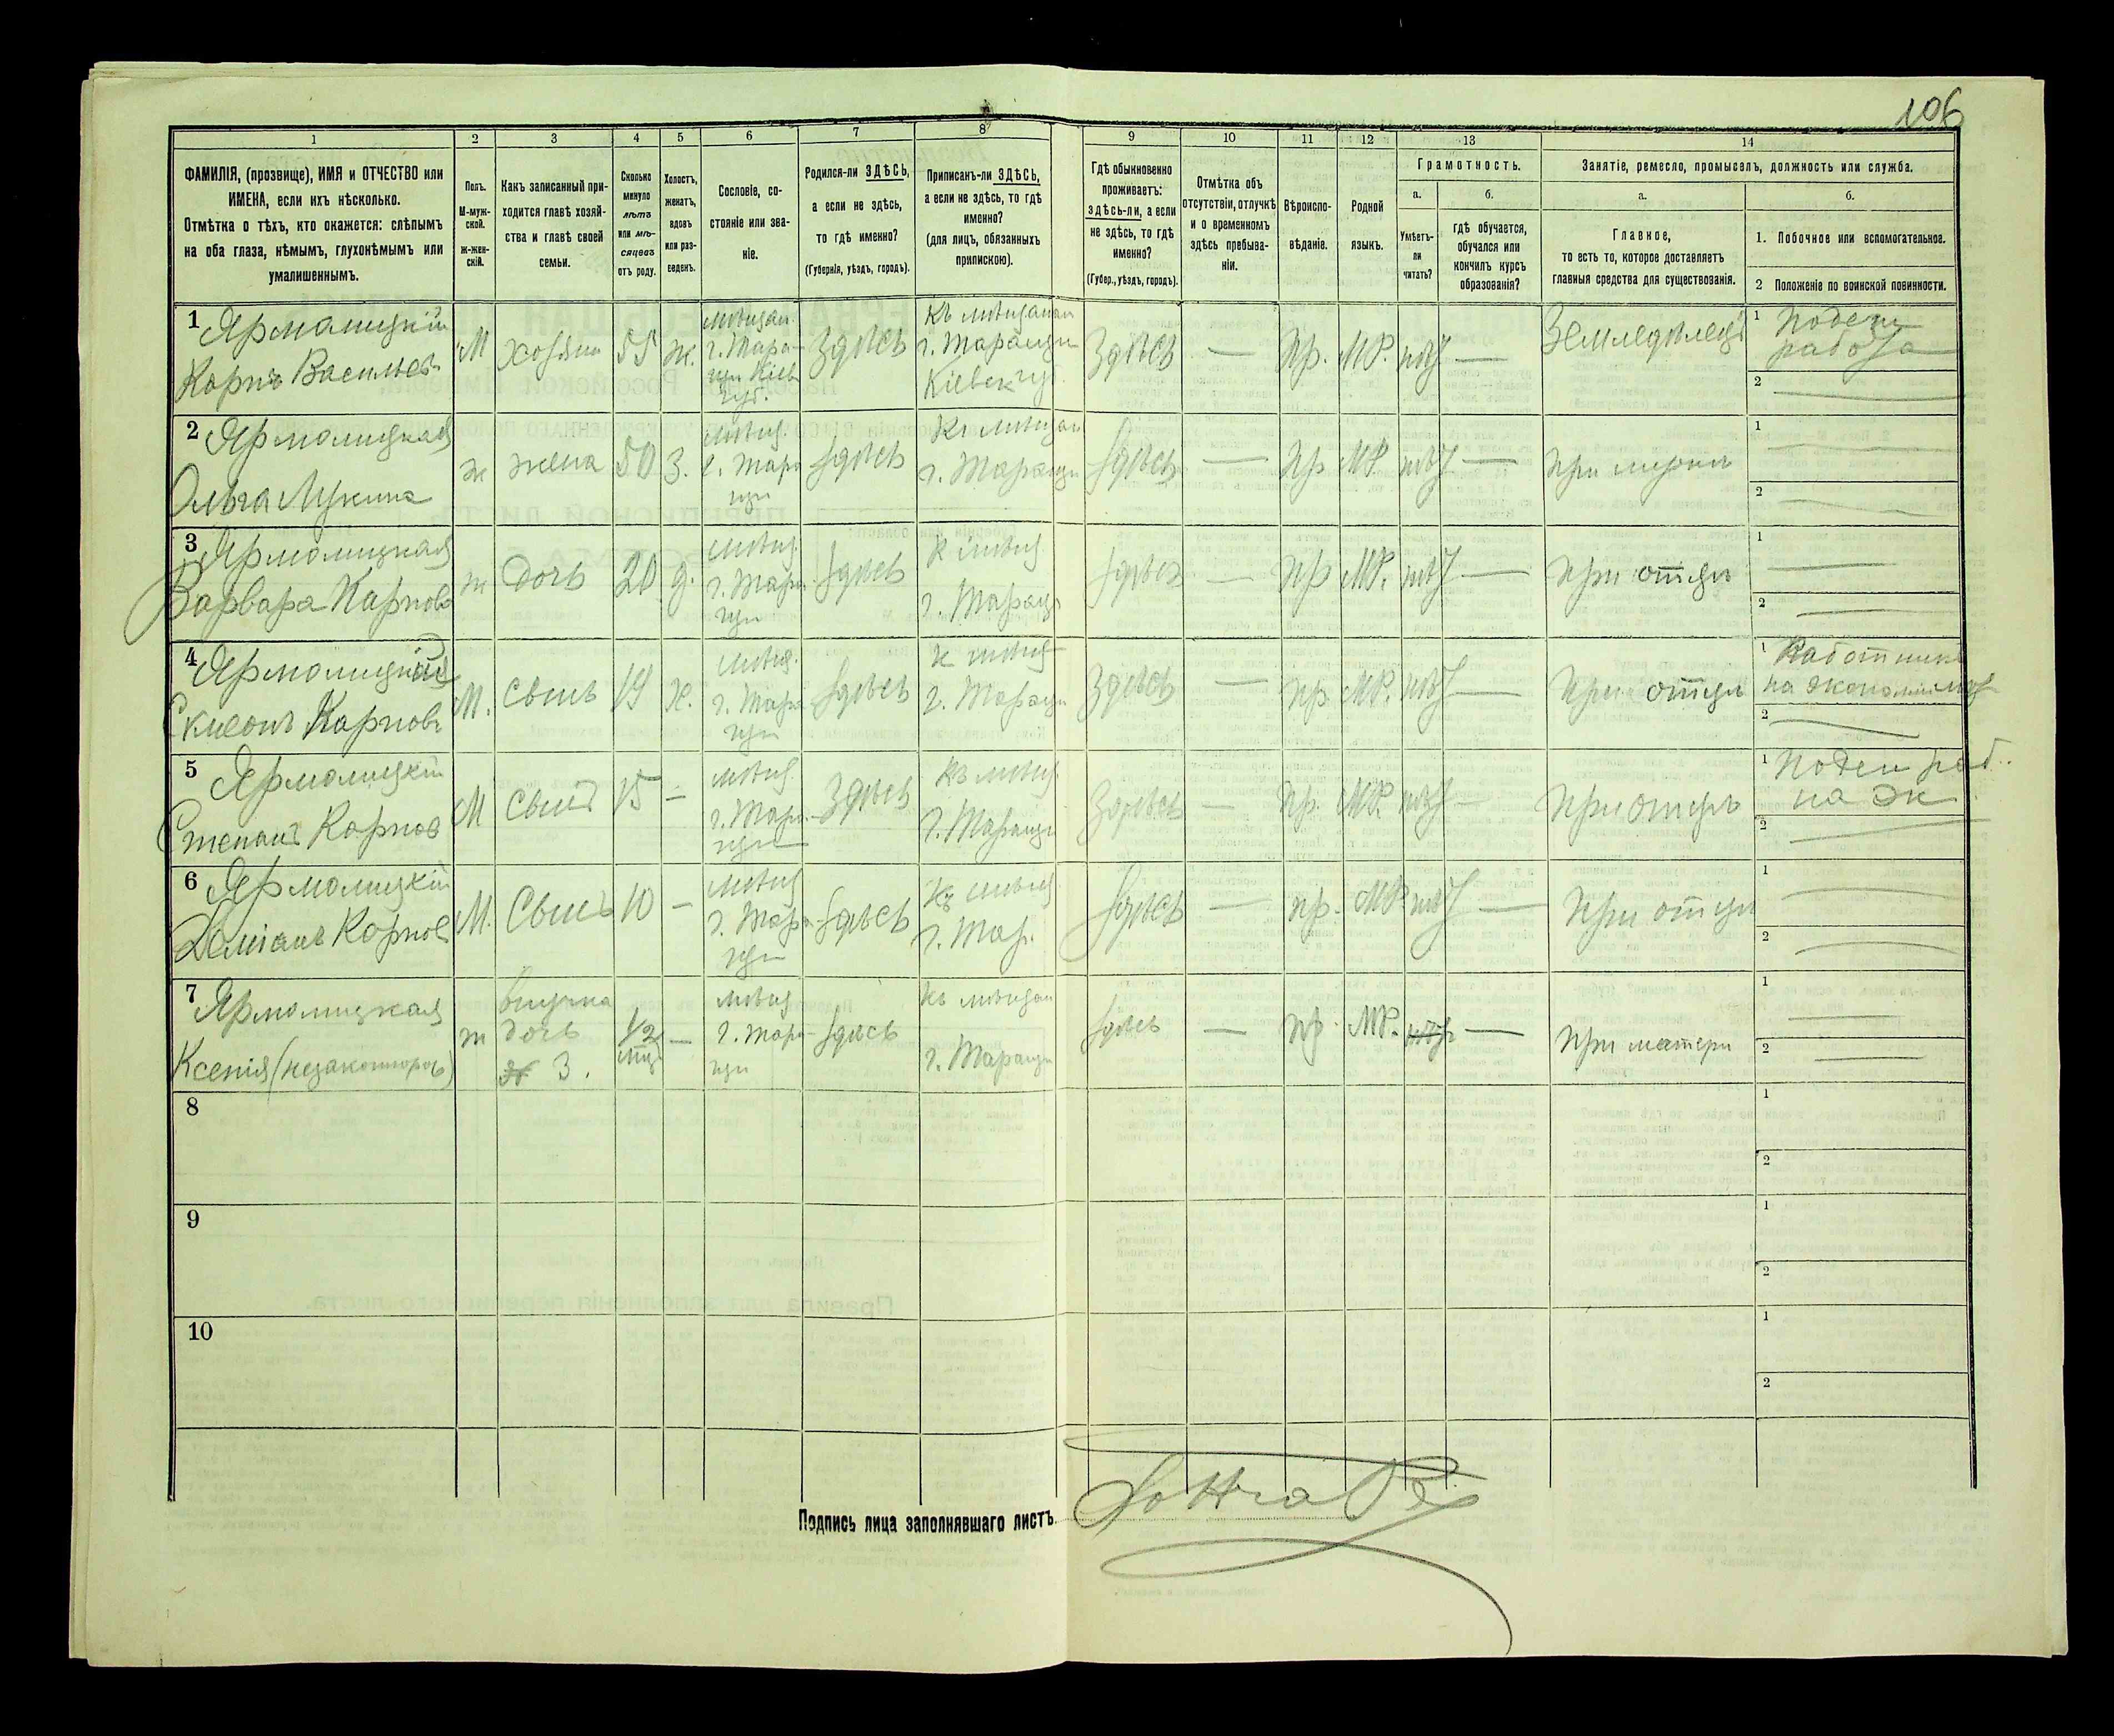 106
1
2
3
4
5
6
7
8
9
10
11
12
13
14
ФАМИЛІЯ, (прозвище), ИМЯ и ОТЧЕСТВО или
ИМЕНА, если ихъ нѣсколько.
Отмѣтка о тѣхъ, кто окажется: слѣпымъ
на оба глаза, нѣмымъ, глухонѣмымъ или
умалишеннымъ.
Полъ.
М-муж-
ской.
ж-жен-
скій.
Какъ записанный при-
ходится главѣ хозяй-
ства и главѣ своей
семьи.
Сколько
минуло
лѣтъ
или мѣ-
сяцевъ
отъ роду.
Холостъ,
женатъ,
вдовъ
или раз-
веденъ.
Сословіе, со-
стояніе или зва-
ніе.
Родился-ли ЗДѢСЬ,
а если не здѣсь,
то гдѣ именно?
(Губернія, уѣздъ, городъ).
Приписанъ-ли ЗДѢСЬ,
а если не здѣсь, то гдѣ
именно?
(для лицъ, обязанныхъ
припискою).
Гдѣ обыкновенно
проживаетъ:
здѣсь-ли, а если
не здѣсь, то гдѣ
именно?
(Губер., уѣздъ, городъ).
Отмѣтка объ
отсутствіи, отлучкѣ
и о временномъ
здѣсь пребыва-
ніи.
Вѣроиспо-
вѣданіе.
Родной
языкъ.
Грамотность.
а.
б.
Умѣетъ-
ли
читать?
гдѣ обучается,
обучался или
кончилъ курсъ
образованія?
Занятіе, ремесло, промыселъ, должность или служба.
а.
б.
Главное,
то есть то, которое доставляетъ
главныя средства для существованія.
1. Побочное или вспомогательное.
2 Положеніе по воинской повинности.
1 Ярмолицкій
Карпъ Васильев
М
хозяин
55
ж.
мѣщан.
г. Тара-
щи Кіев
губ.
Здѣсь
Къ мѣщанам
г. Таращи
Кіевск губ.
Здѣсь
—
Пр.
МР.
нѣт
—
Земледѣлецъ
1 Поден
работа
2
2 Ярмолицкая
Ольга Лукина
ж
жена
50
З.
мѣщ.
г. Тара
щи
здѣсь
Къ мѣщан
г. Таращи
здѣсь
—
Пр
МР.
нѣт
—
При мужѣ
1
2
3 Ярмолицкая
Варвара Карпова
ж
дочь
20
д.
мѣщ.
г. Тара
щи
здѣсь
К мѣщ.
г. Таращи
здѣсь
—
Пр
МР.
нѣт
—
При отцѣ
1
2
4 Ярмолицкій
Симеонъ Карповъ
М.
Сынъ
19
Х.
мѣщ.
г. Тара
щи
здѣсь
К мѣщ
г. Таращи
Здѣсь
—
пр.
МР.
нѣт
—
При отцѣ
1 Работник
на экономіи
2
5 Ярмолицкій
Степанъ Карпов
М
Сынъ
15
—
мѣщ.
г. Тара
щи
Здѣсь
Къ мѣщ.
г. Таращи
Здѣсь
—
Пр.
МР.
нѣт
—
При отцѣ
1 Поден раб.
на эк
2
6 Ярмолицкій
Даміанъ Карпов
М.
Сынъ
10
—
мѣщ
г. Тара
щи
здѣсь
Къ мѣщ.
г. Тар.
здѣсь
—
пр.
МР
нѣт
—
При отцѣ
1
2
7 Ярмолицкая
Ксенія (незаконнорож)
ж
внучка
дочь
3.
1/2
—
мѣщ
г. Тара
щи
здѣсь
Къ мѣщан
г. Таращи
здѣсь
—
пр.
МР.
нѣт
—
При матери
1
2
8
1
2
9
1
2
10
1
2
Подпись лица заполнявшаго листъ